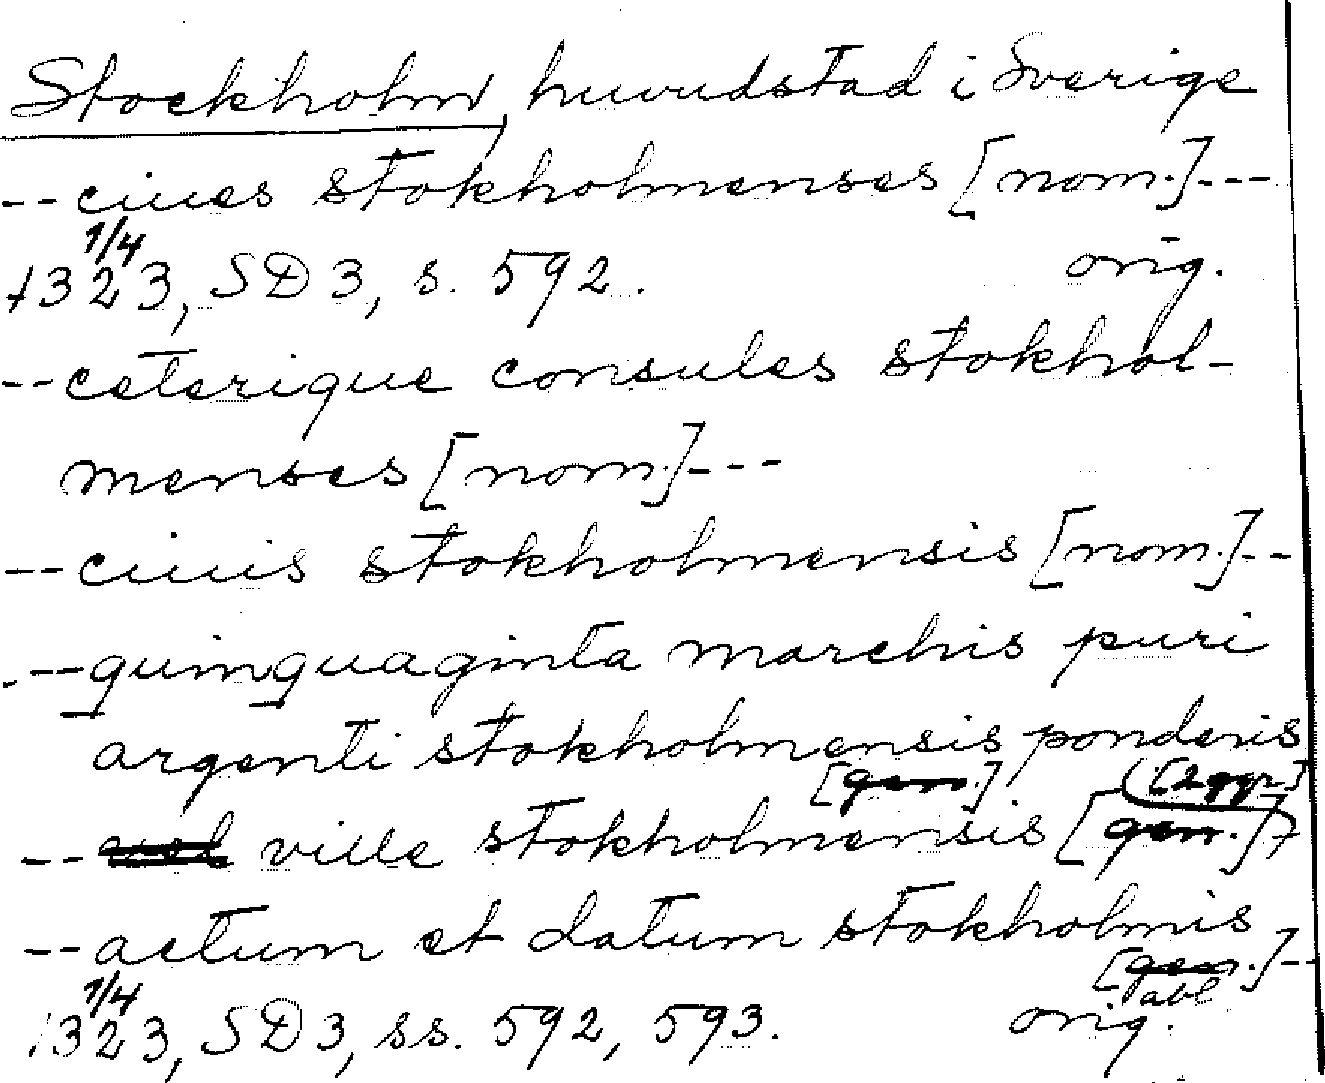 Stockholm, huvudstad i Sverige
--ciues stokholmenses [nom.]---
1/4
1323, SD 3, s. 592. orig.
--ceterique consules stokhol-
menses [nom.]---
--ciuis stokholmensis [nom.]--
--quinquaginta marchis puri
argenti stokholmensis ponderis
[gen.] ([2 ggr]
-- ville stokholmensis [gen.])
--actum et datum stokholmis
[gen.]--
1/4 abl
1323, SD 3, ss. 592, 593. orig.